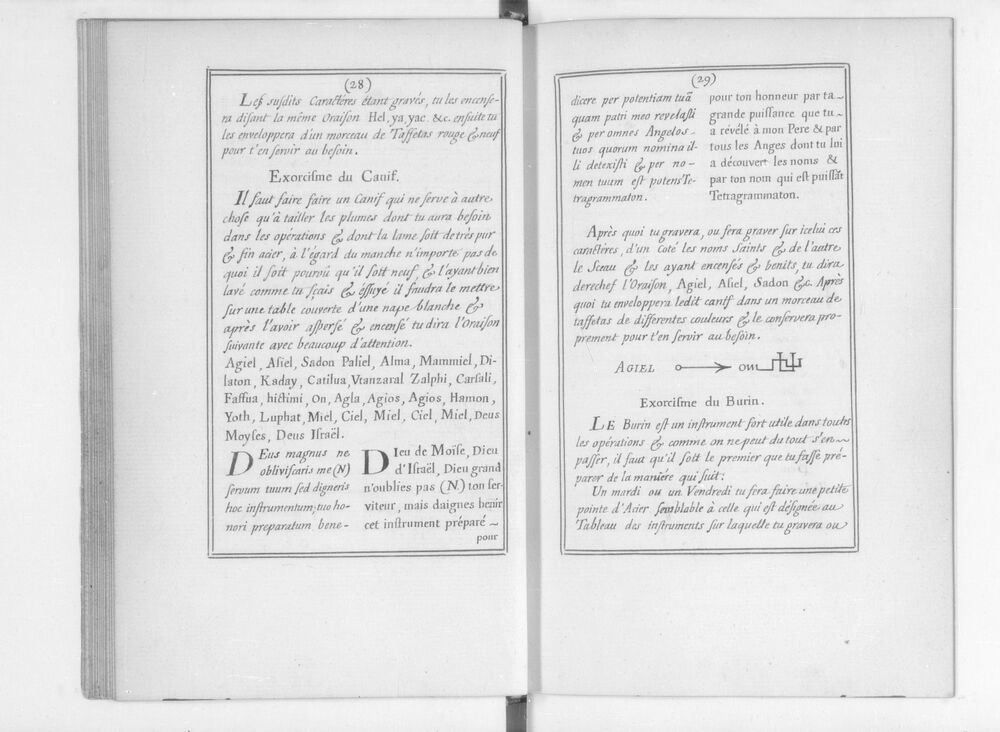 (28)
Les susdits Caractères étant gravés, tu les encense-
ra disant la même Oraison Hel, ya, yac, &c. ensuite tu
les enveloppera d'un morceau de Taffetas rouge & neuf
pour t'en servir au besoin.
Exorcisme du Canif.
Il faut faire faire un Canif qui ne serve à autre
chose qu'à tailler les plumes dont tu aura besoin
dans les opérations & dont la lame soit de très pur
& fin acier, à l'égard du manche n'importe pas de
quoi il soit pourvû qu'il soit neuf, & l'ayant bien
lavé comme tu sçais & essuyé il faudra le mettre
sur une table couverte d'une nape blanche &
après l'avoir aspersé & encensé tu dira l'Oraison
suivante avec beaucoup d'attention.
Agiel, Asiel, Sadon Pasiel, Alma, Mammiel, Di-
laton, Kaday, Catilua, Vtanzaral Zalphi, Carsali,
Faffua, hictimi, On, Agla, Agios, Agios, Hamon,
Yoth, Luphat, Miel, Ciel, Miel, Ciel, Miel, Deus
Moyses, Deus Israël.
DEus magnus ne
obliviscaris me (N)
servum tuum sed digneris
hoc instrumentum, tuo ho-
nori preparatum bene-
DIeu de Moïse, Dieu
d'Israël, Dieu grand
n'oublies pas (N.) ton ser-
viteur, mais daignes benir
cet instrument préparé ~
pour
(29)
dicere per potentiam tuã
quam patri meo revelasti
& per omnes Angelos
tuos quorum nomina il-
li detexisti & per no-
men tuum est potens Te-
tragrammaton.
pour ton honneur par ta ~
grande puissance que tu ~
a révélé à mon Pere & par
tous les Anges dont tu lui
a découvert les noms &
par ton nom qui est puissãt
Tetragrammaton.
Après quoi tu gravera, ou fera graver sur icelui ces
caractères, d'un coté les noms Saints & de l'autre
le Sceau & les ayant encensés & benits, tu dira
derechef l'Oraison, Agiel, Asiel, Sadon &c. Après
quoi tu enveloppera ledit canif dans un morceau de
taffetas de differentes couleurs & le conservera pro-
prement pour t'en servir au besoin.
AGIEL
Exorcisme du Burin.
LE Burin est un instrument fort utile dans toutes
les opérations & comme on ne peut du tout s'en ~
passer, il faut qu'il soit le premier que tu fasse pré-
parer de la maniére qui suit:
Un mardi ou un Vendredi tu fera faire une petite
pointe d'Acier semblable à celle qui est désignée au
Tableau des instruments sur laquelle tu gravera ou